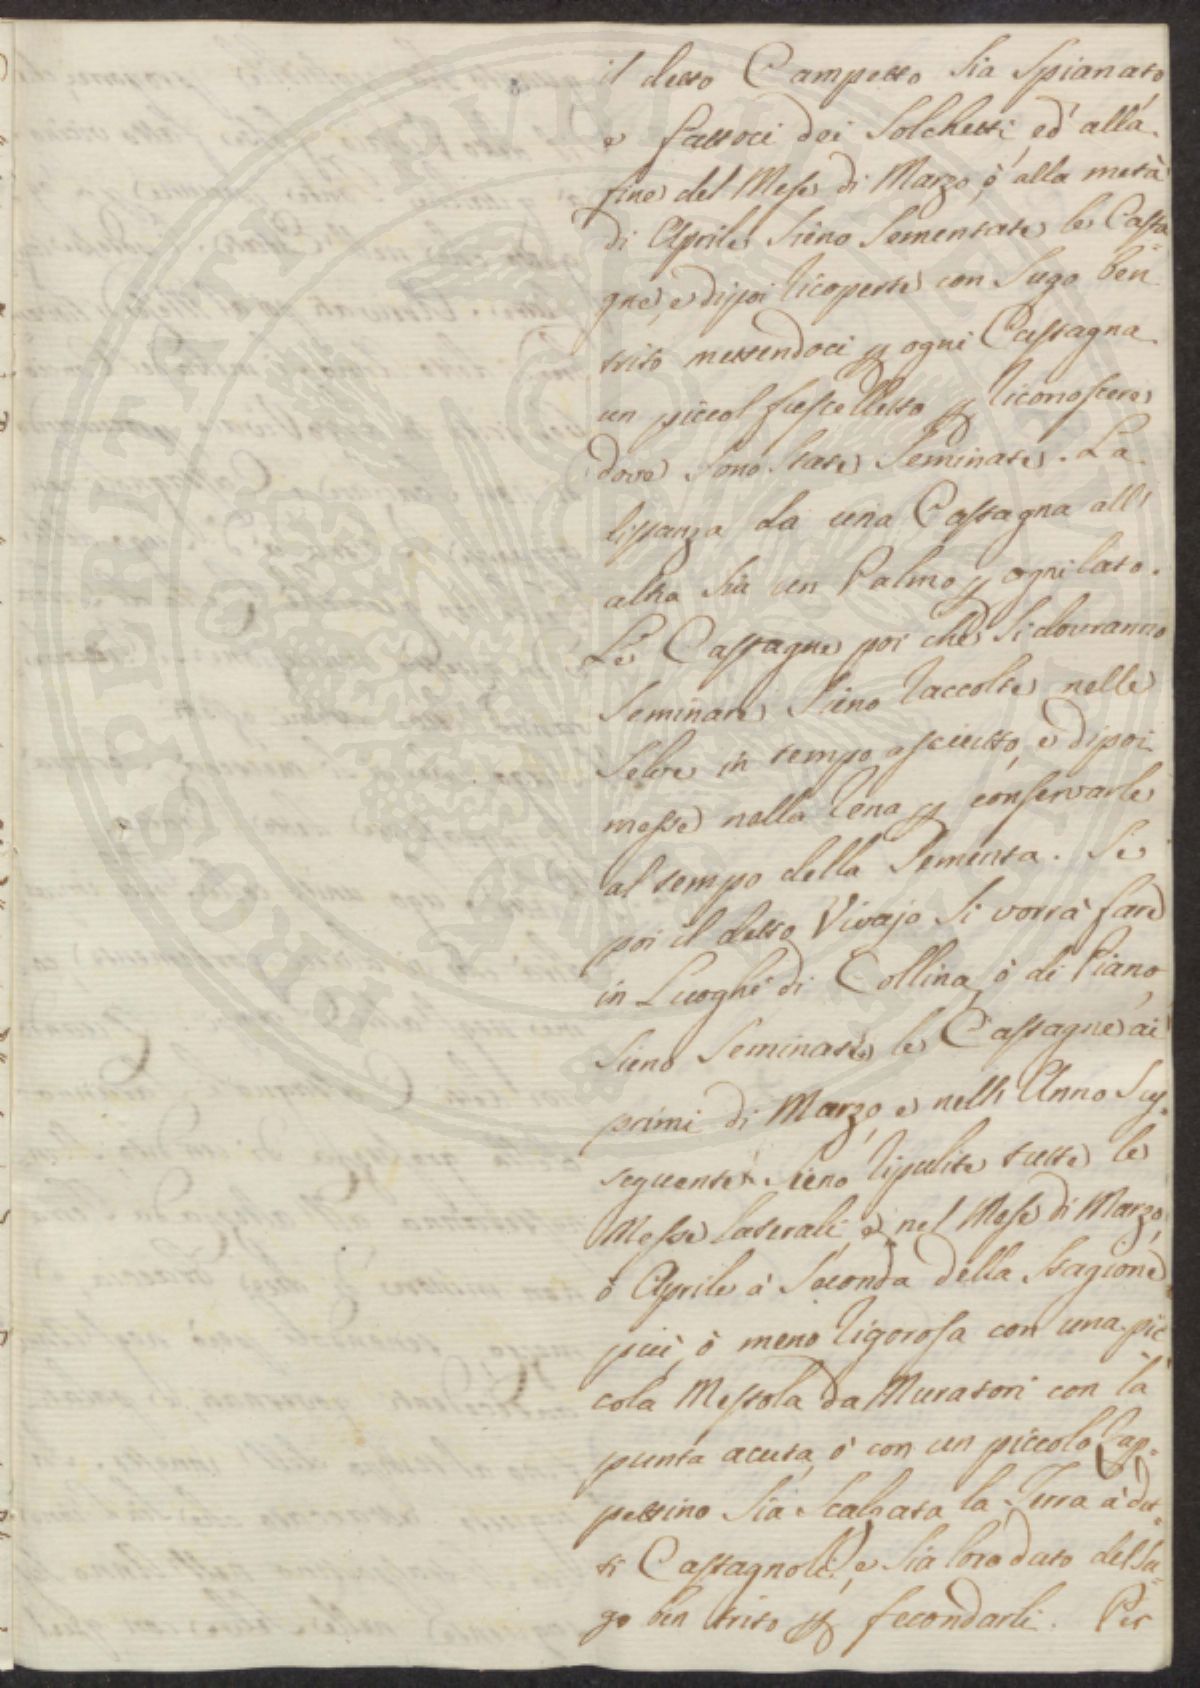 il detto Campetto sia spianato
e fattoci dei Solchetti, ed' alla
fine del Mese di Marzo, ò alla metà
di Aprile sieno sementate le Casta=
gne, e dipoi ricoperte con sugo ben
trito mettendoci p ogni Castagna
un piccol fuscelletto p riconoscere
dove sono state seminate. La
distanza da una Castagna all'
altra sia un Palmo p ogni lato.
Le Castagne poi che si dovranno
seminare sieno raccolte nelle
Selve in tempo asciutto, e dipoi
messe nella rena p conservarle
al tempo della sementa. Se
poi il detto Vivajo si vorrà fare
in Luoghi di Collina, ò di Piano,
sieno seminate le Castagne ai
primi di Marzo, e nell' Anno sus=
seguente sieno ripulite tutte le
Messe laterali, e nel Mese di Marzo,
ò Aprile à seconda della stagione
più, ò meno rigorosa con una pic
cola Mestola da Muratori con la
punta acuta, ò con un piccolo Zap=
pettino sia scalzata la Terra à det=
ti Castagnoli, e sia loro dato del su=
go ben trito p fecondarli. Per
PROSPERITATI PUBLICAE